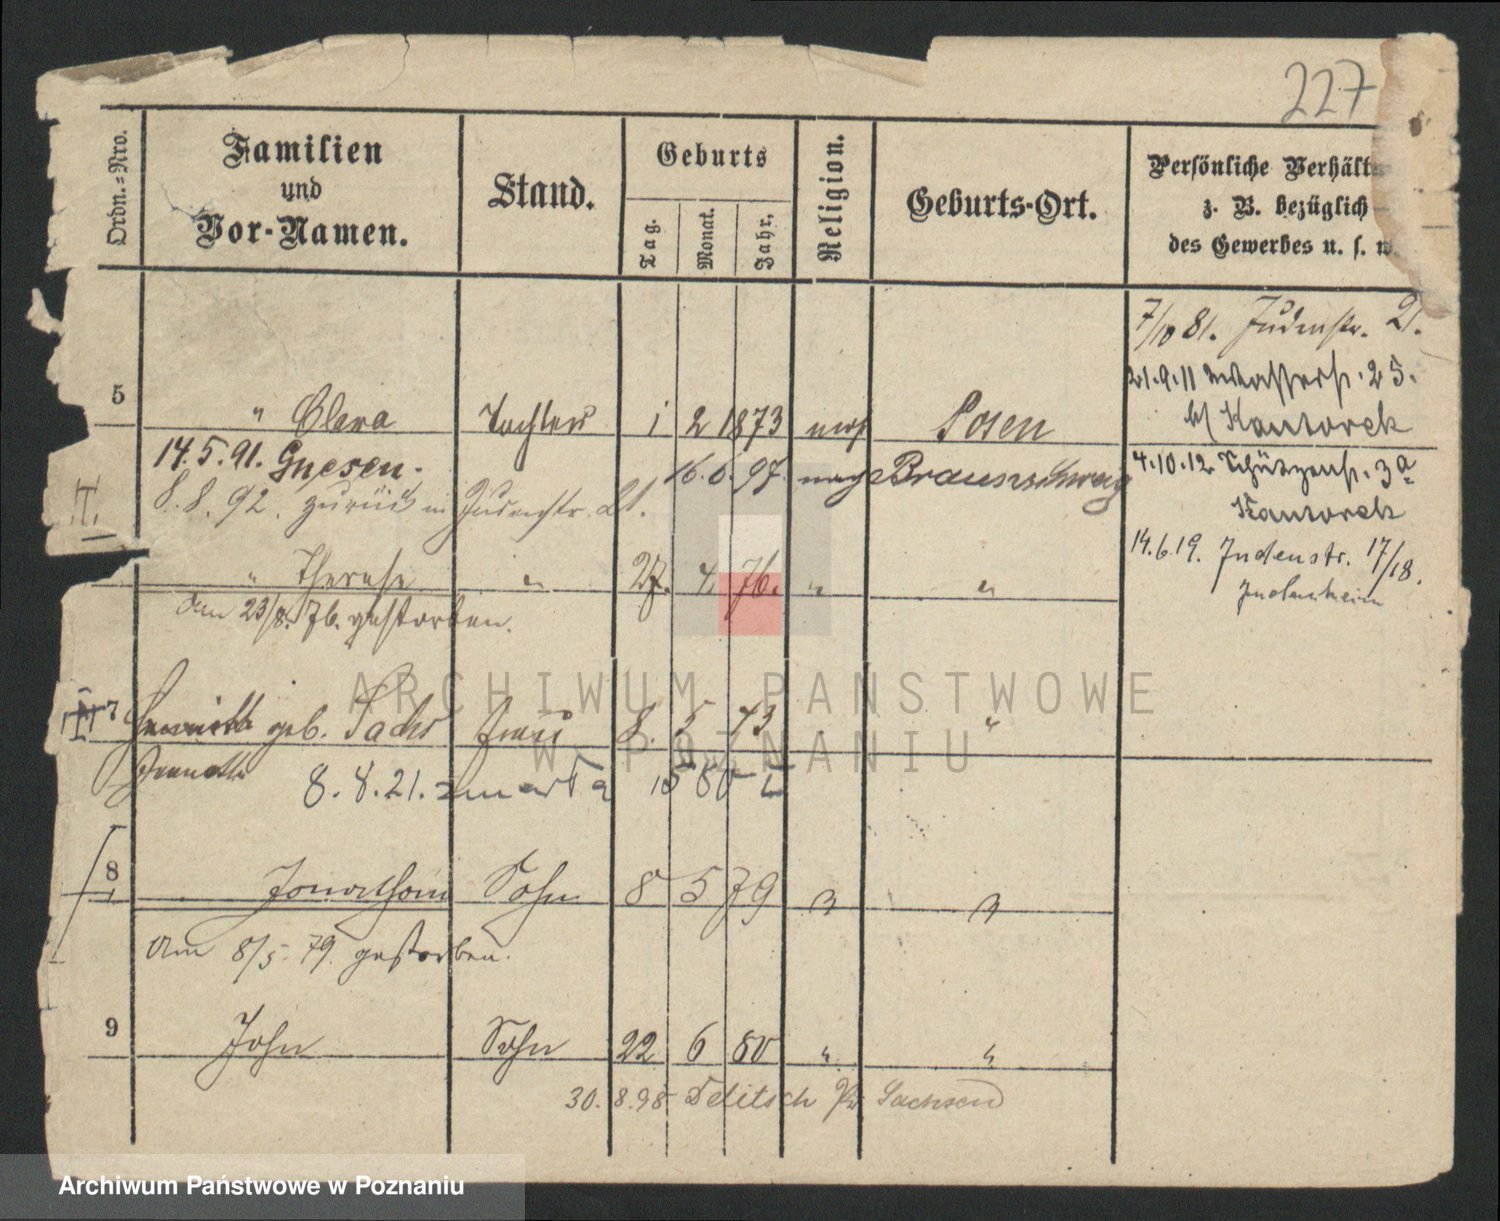 227
Ordn.-Nro.
Familien
und
Vor-Namen.
Stand.
Geburts
Tag.
Monat.
Jahr.
Religion.
Geburts-Ort.
Persönliche Verhält
z. B. bezüglich
des Gewerbes u. s. w.
7/10 81. Judenstr. 21.
21.9.11 Wasserstr. 25.
b/ Kantorek
5 " Clara Tochter 1 2 1873 mos Posen
14.5.91. Gnesen. 16.6.97. nach Braunschweig
8.8.92. zurück in Judenstr. 21.
4.10.12 Schützenstr. 3a
Kantorek
14.6.19. Judenstr. 17/18.
II.
" Therese " 27. 4. 76. " "
Am 23/8. 76. gestorben.
7 geb. Sachs Frau 8. 5 73 "
8.8.21. zmarła
8 Jonathan Sohn 8 5 79
Am 8/5 79. gestorben.
9 John Sohn 22 6 80 " "
30.8.98 Delitsch Pr. Sachsen
ARCHIWUM PAŃSTWOWE
W POZNANIU
Archiwum Państwowe w Poznaniu